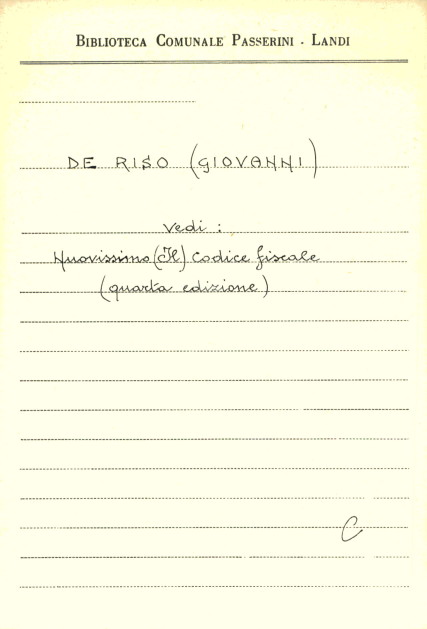 BIBLIOTECA COMUNALE PASSERINI - LANDI
DE RISO (GIOVANNI)
Vedi :
Nuovissimo (Il) Codice fiscale
(quarta edizione)
C